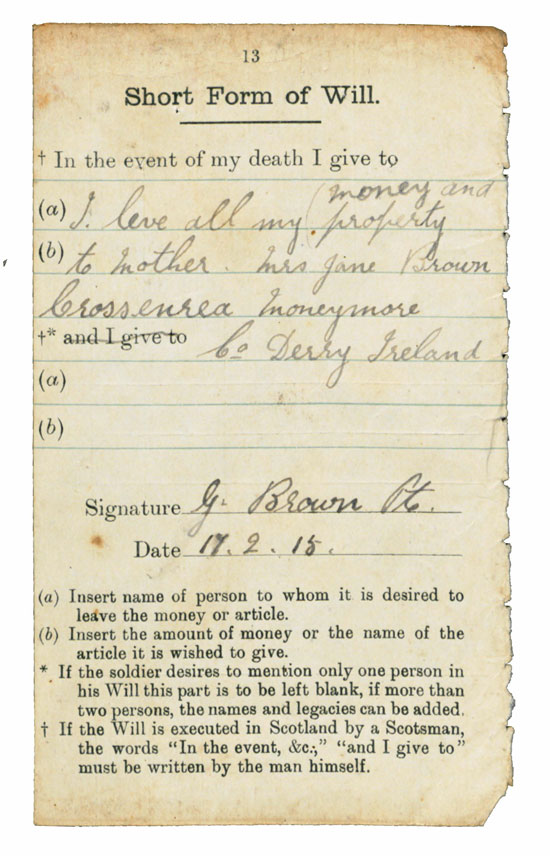 13
Short Form of Will.
† In the event of my death I give to
money and
(a) I. leve all my property
(b) to Mother. Mrs Jane Brown
Crossenrea Moneymore
†* and I give to Co Derry Ireland
(a)
(b)
Signature G. Brown Pt.
Date 17. 2. 15.
(a) Insert name of person to whom it is desired to
leave the money or article.
(b) Insert the amount of money or the name of the
article it is wished to give.
* If the soldier desires to mention only one person in
his Will this part is to be left blank, if more than
two persons, the names and legacies can be added.
† If the Will is executed in Scotland by a Scotsman,
the words “In the event, &c.,” “and I give to”
must be written by the man himself.